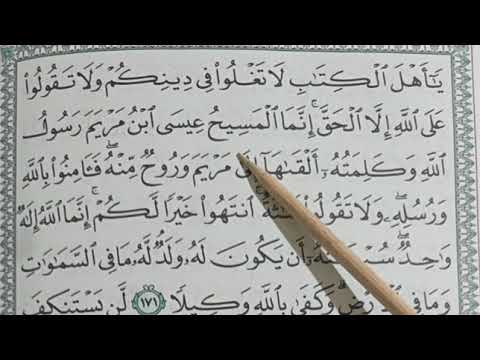 يَٰٓأَهۡلَ ٱلۡكِتَٰبِ لَا تَغۡلُواْ فِي دِينِكُمۡ وَلَا تَقُولُواْ
عَلَى ٱللَّهِ إِلَّا ٱلۡحَقَّۚ إِنَّمَا ٱلۡمَسِيحُ عِيسَى ٱبۡنُ مَرۡيَمَ رَسُولُ
ٱللَّهِ وَكَلِمَتُهُۥٓ أَلۡقَىٰهَآ مَرۡيَمَ وَرُوحٞ مِّنۡهُۖ فَـَٔامِنُواْ بِٱللَّهِ
وَرُسُلِهِۦۖ وَلَا تَقُولُواْ ٱنتَهُواْ خَيۡرٗا لَّكُمۡۚ إِنَّمَا ٱللَّهُ إِلَٰهٞ
وَٰحِدٞۖ أَن يَكُونَ لَهُۥ وَلَدٞۘ لَّهُۥ مَا فِي ٱلسَّمَٰوَٰتِ
وَمَا فِي وَكَفَىٰ بِٱللَّهِ وَكِيلٗا ١٧١ لَّن يَسۡتَنكِفَ